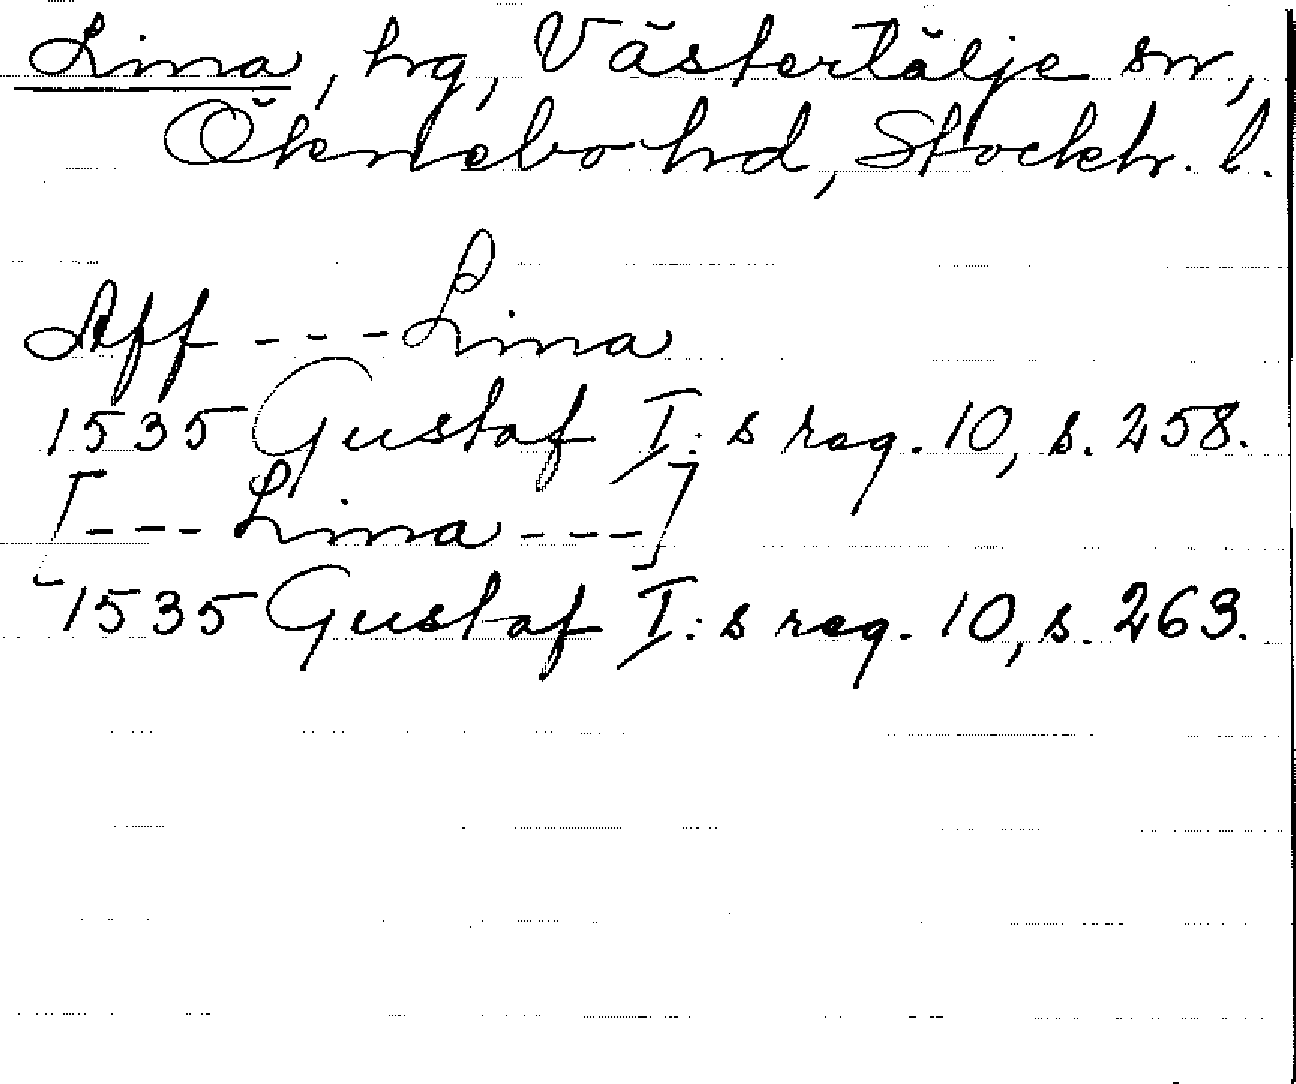 Lina, hg, Västertälje sn,
Öknebo hd, Stockh. l.
Aff - - - Lina
1535 Gustaf I:s reg. 10, s. 258.
[- - - Lina - - -]
1535 Gustaf I:s reg. 10, s. 263.